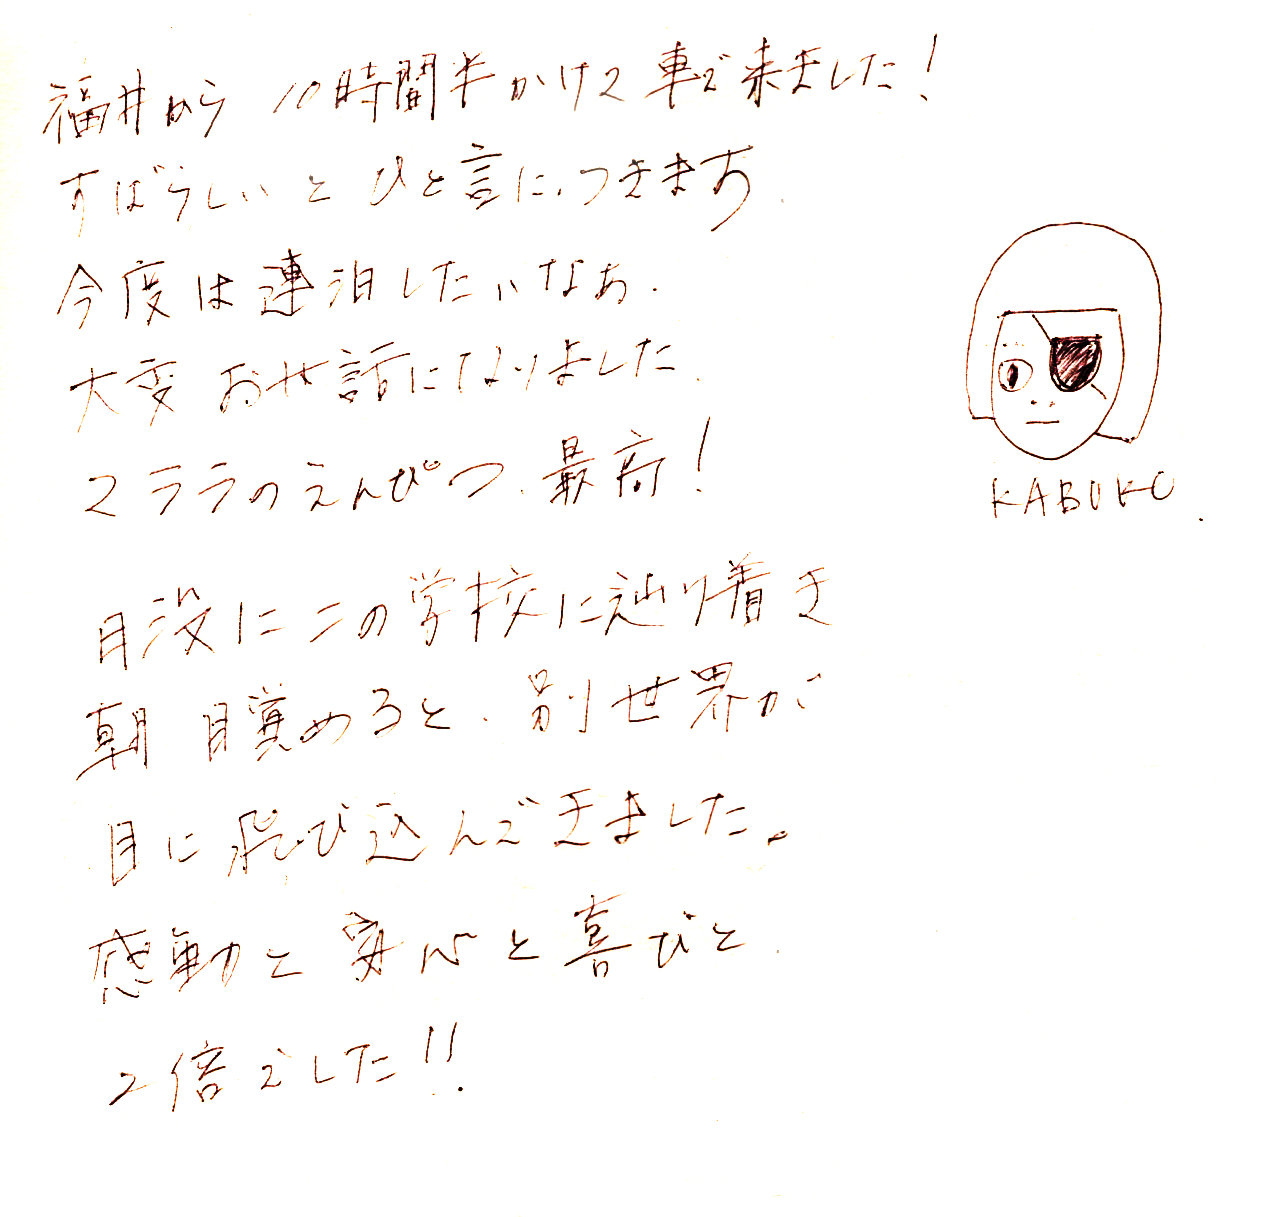 福井から 10時間半かけて車で来ました!
すばらしいと ひと言に、つきます
今度は連泊したいなあ.
大変 お世話になりました.
てララのえんぴつ、最高!
KABUKO.
日没にこの学校に辿り着き
朝 目覚めると、別世界が
目に飛び込んできました。
感動と安心と喜びと.
2倍でした!!